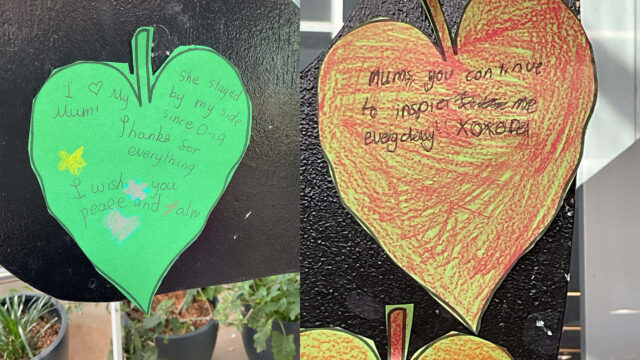 I ♡ My
Mum
she stayed
by my side
since 0→9
Thanks for
everything
I wish you
peace and calm
Mums you continue
to inspier me
everyday! XOXOXO